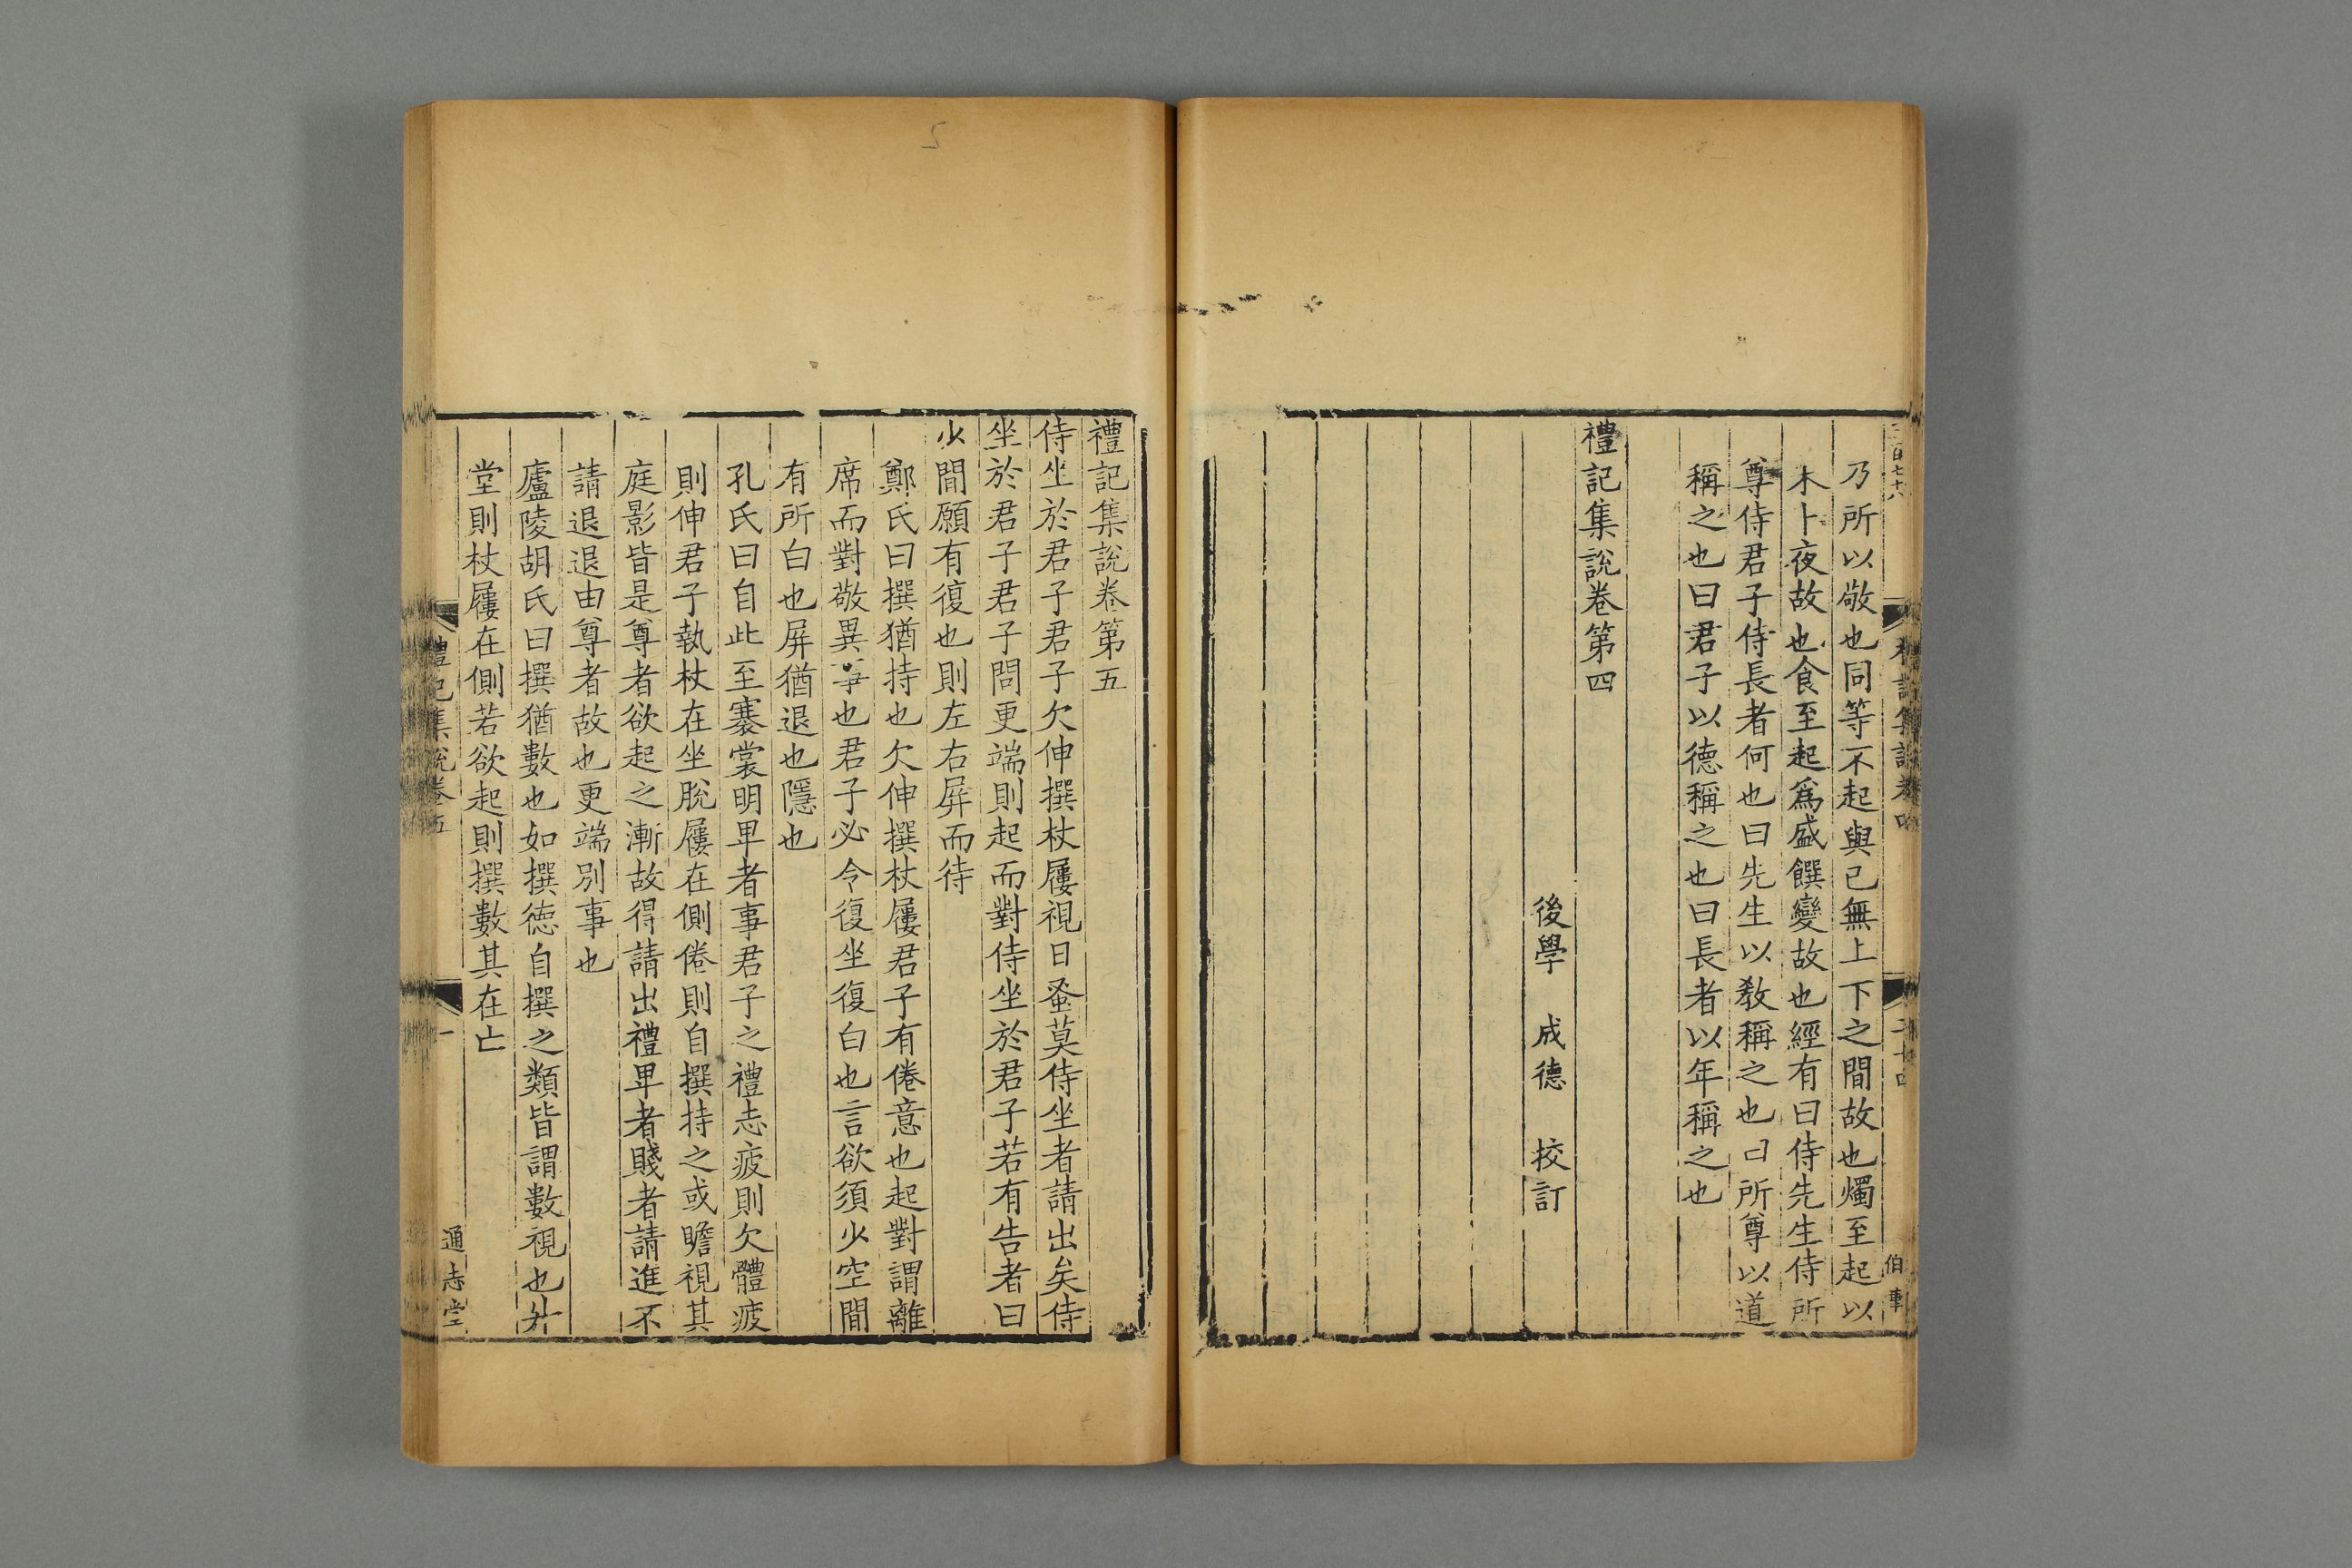 乃所以敬也同等不起與己無上下之間故也燭至起以
木卜夜故也食至起爲盛饌變故也經有曰侍先生侍所
尊侍君子侍長者何也曰先生以敎稱之也曰所尊以道
稱之也曰君子以德稱之也曰長者以年稱之也
禮記集說卷第四
後學 成德 挍訂
禮記集說卷第五
侍坐於君子君子欠伸撰杖屨視日蚤莫侍坐者請出矣侍
坐於君子君子問更端則起而對侍坐於君子若有告者曰
少間願有復也則左右屛而待
鄭氏曰撰猶持也欠伸撰杖屨君子有倦意也起對謂離
席而對敬異事也君子必令復坐復白也言欲須少空間
有所白也屛猶退也隱也
孔氏曰自此至褰裳明卑者事君子之禮志疲則欠體疲
則伸君子執杖在坐脫屨在側倦則自撰持之或瞻視其
庭影皆是尊者欲起之漸故得請出禮卑者賤者請進不
請退退由尊者故也更端別事也
廬陵胡氏曰撰猶數也如撰德自撰之類皆謂數視也升
堂則杖屨在側若欲起則撰數其在亡
禮記集說卷五
一
通志堂